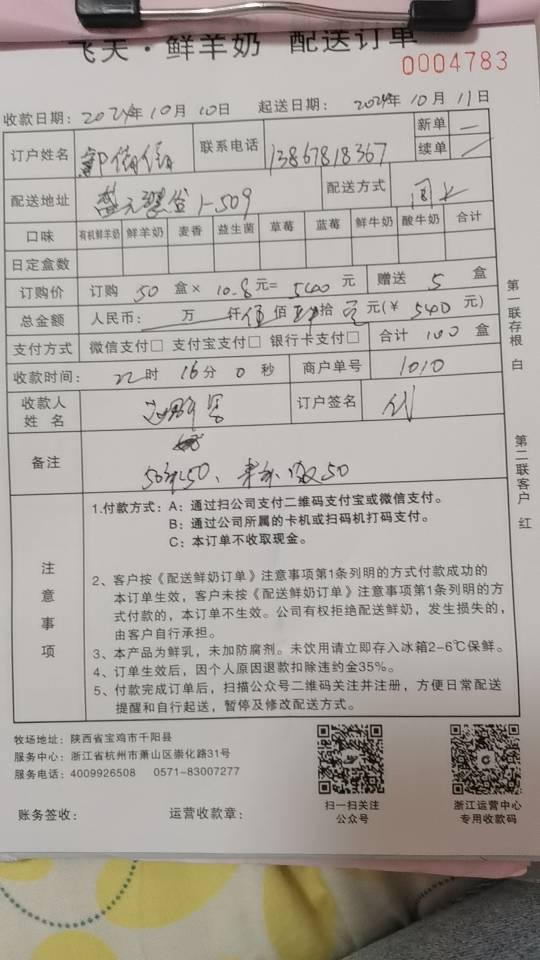 飞天·鲜羊奶 配送订单
0004783
收款日期：2024年10月10日 起送日期：2024年10月11日
订户姓名 联系电话 13867818367 新单 续单
配送地址 1-509 配送方式
口味 有机鲜羊奶 鲜羊奶 麦香 益生菌 草莓 蓝莓 鲜牛奶 酸牛奶 合计
日定盒数
订购价 订购 50 盒× 10.8 元= 540 元 赠送 5 盒
总金额 人民币： 万 仟 伍 佰 肆 拾 元(￥ 540 元)
支付方式 微信支付□ 支付宝支付□ 银行卡支付□ 合计 100 盒
收款时间： 22时 16分 0秒 商户单号 1010
收款人姓名 订户签名
备注
50送50、 50
第一联存根 白
第二联客户 红
注意事项
1.付款方式：A：通过扫公司支付二维码支付宝或微信支付。
B：通过公司所属的卡机或扫码机打码支付。
C：本订单不收取现金。
2、客户按《配送鲜奶订单》注意事项第1条列明的方式付款成功的
本订单生效，客户未按《配送鲜奶订单》注意事项第1条列明的方
式付款的，本订单不生效。公司有权拒绝配送鲜奶，发生损失的，
由客户自行承担。
3、本产品为鲜乳，未加防腐剂。未饮用请立即存入冰箱2-6℃保鲜。
4、订单生效后，因个人原因退款扣除违约金35%。
5、付款完成订单后，扫描公众号二维码关注并注册，方便日常配送
提醒和自行起送，暂停及修改配送方式。
牧场地址：陕西省宝鸡市千阳县
服务中心：浙江省杭州市萧山区崇化路31号
服务电话：4009926508 0571-83007277
扫一扫关注
公众号
浙江运营中心
专用收款码
账务签收： 运营收款章：